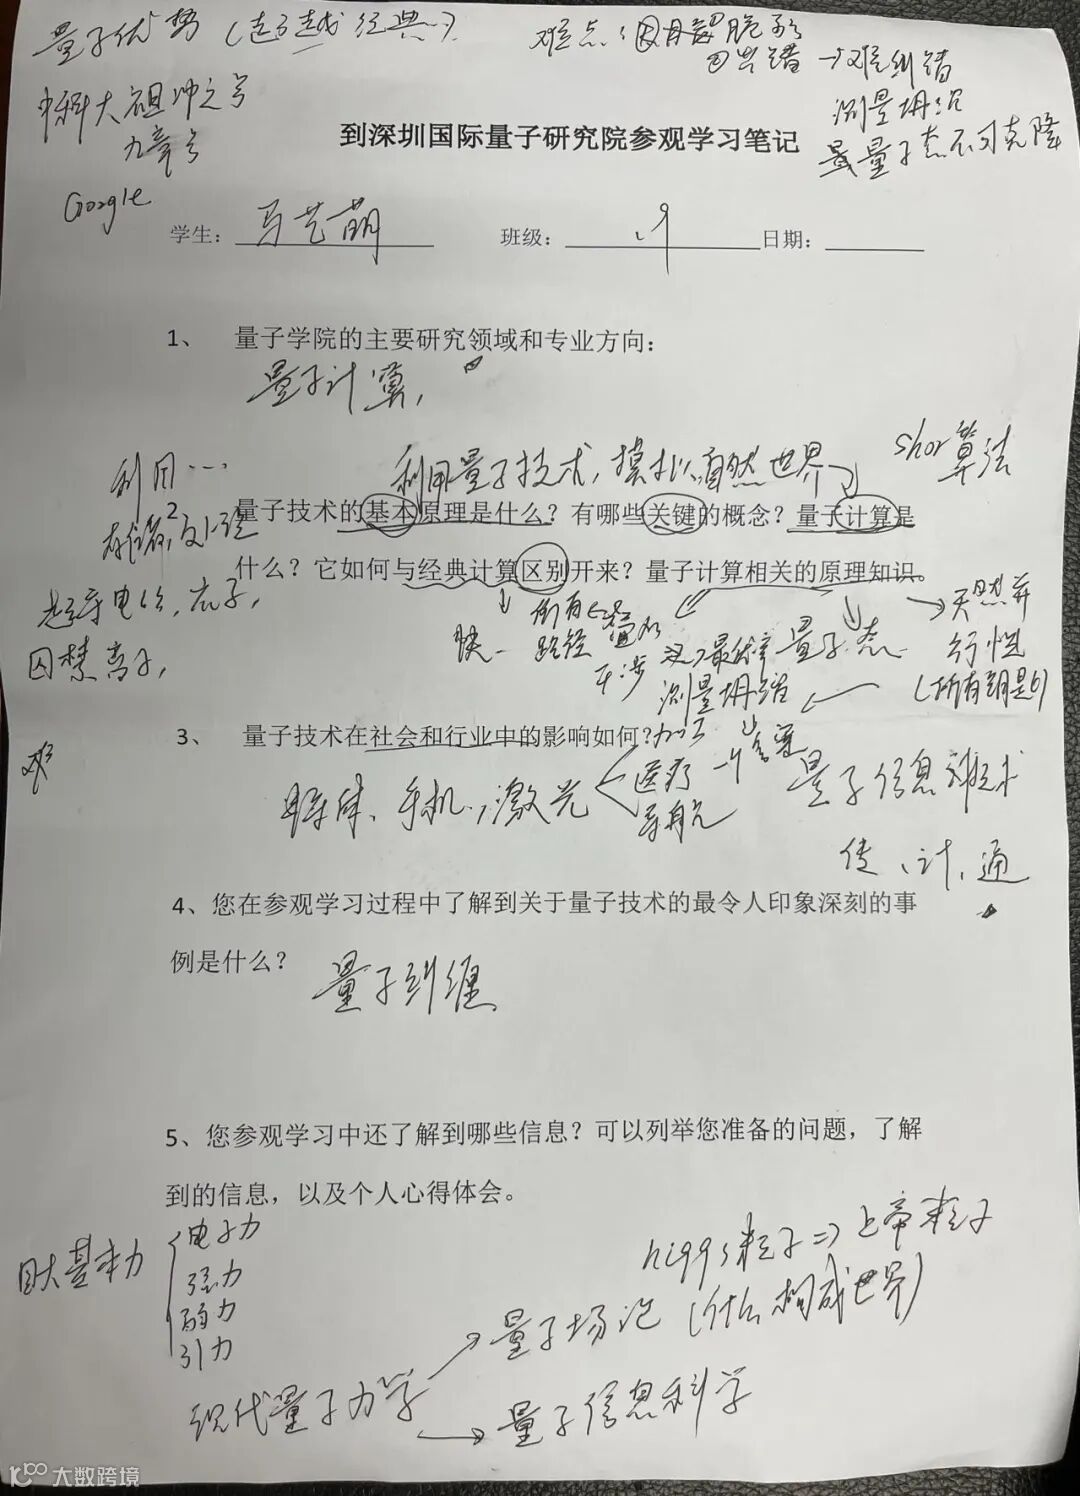 量子优势（超越经典）
难点：
→难纠错
测量坍缩
量子态不可克隆
中科大祖冲之号
九章号
Google
到深圳国际量子研究院参观学习笔记
学生：马艺萌 班级： 日期：
1、 量子学院的主要研究领域和专业方向：
量子计算，
利用…
利用量子技术，模拟自然世界
Shor算法
存储，处理
量子技术的基本原理是什么？有哪些关键的概念？量子计算是
什么？它如何与经典计算区别开来？量子计算相关的原理知识。
超导电路，光子，
囚禁离子，
快
所有
路径
干涉
量子态
测量坍缩
天然并
行性
难
3、 量子技术在社会和行业中的影响如何？
晶体、手机，激光
医疗
导航
量子信息技术
传、计、通
4、您在参观学习过程中了解到关于量子技术的最令人印象深刻的事
例是什么？
量子纠缠
5、您参观学习中还了解到哪些信息？可以列举您准备的问题，了解
到的信息，以及个人心得体会。
四大基本力
电子力
强力
弱力
引力
higgs粒子⇒上帝粒子
现代量子力学
→量子场论（什么构成世界）
→量子信息科学
大数跨境